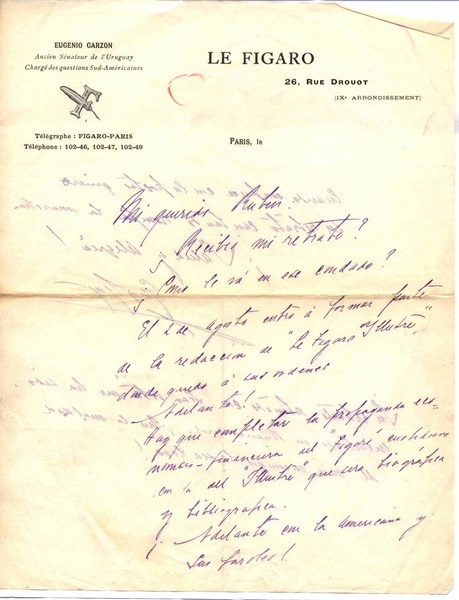 EUGENIO GARZON
Ancien Sénateur de l'Uruguay
Chargé des questions Sud-Américaines
Télégraphe : FIGARO-PARIS
Téléphone : 102-46, 102-47, 102-49
LE FIGARO
26, RUE DROUOT
(IXe ARRONDISSEMENT)
PARIS, le
Mi querido Ruben.
Recibió mi retrato?
y Como le vá en ese condado?
El 2 de agosto entró á formar parte
de la redaccion de "Le Figaro Illustré,"
donde quedo á sus ordenes
Adelante!
Hay que completar la propaganda eco-
nomico-financiera del "Figaro" cuotidiano
con la del "Illustré" que será biografica
y bibliografica.
¡Adelante con la americana y
los faroles!